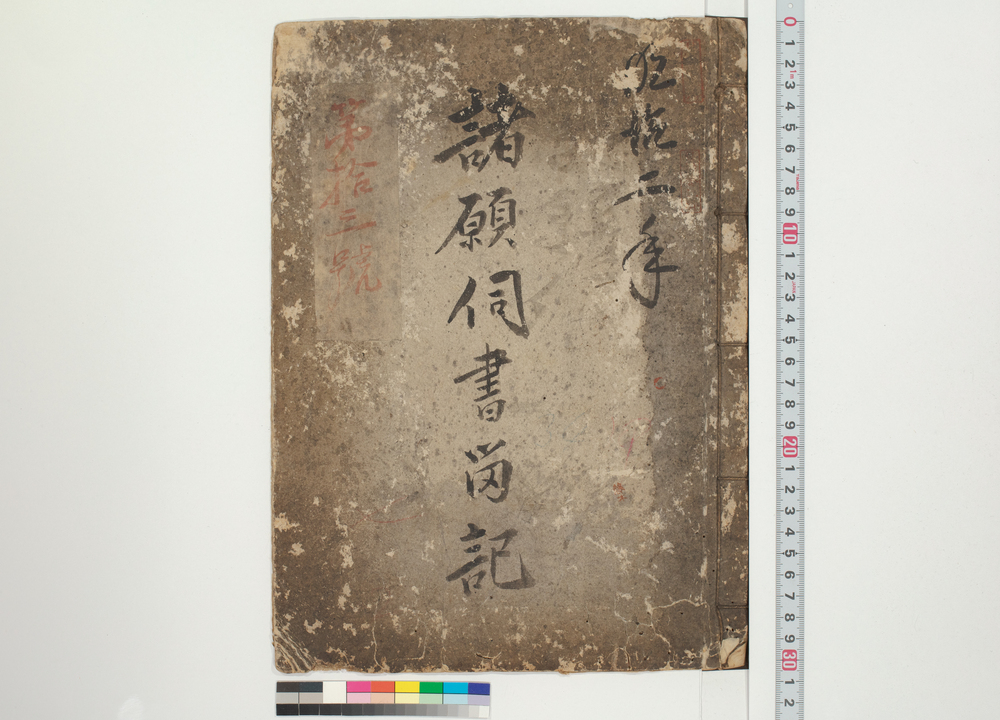 二年
諸願伺書留記
第拾三號
0 1 2 3 4 5 6 7 8 9 10 1 2 3 4 5 6 7 8 9 20 1 2 3 4 5 6 7 8 9 30 1 2